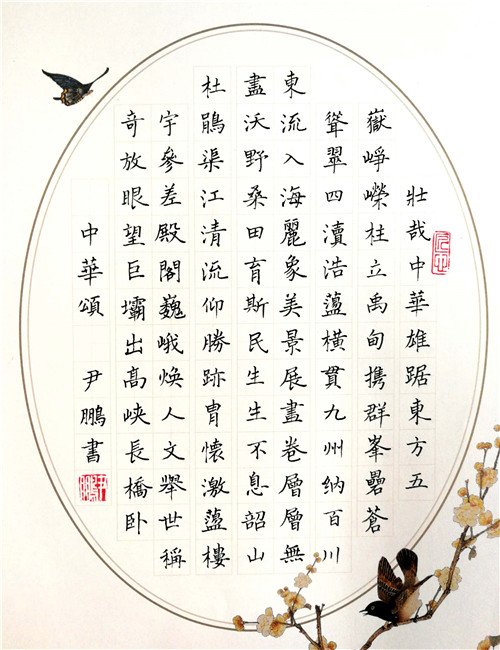 壯哉中華雄踞東方五
嶽崢嶸柱立禹甸携群峯疊蒼
聳翠四瀆浩蘯橫貫九州納百川
東流入海麗象美景展畫卷層層無
盡沃野桑田育斯民生生不息韶山
杜鵑渠江清流仰勝跡胄懷激蘯樓
宇參差殿閣巍峨煥人文舉世稱
奇放眼望巨壩出高峽長橋卧
中華頌 尹鵬書